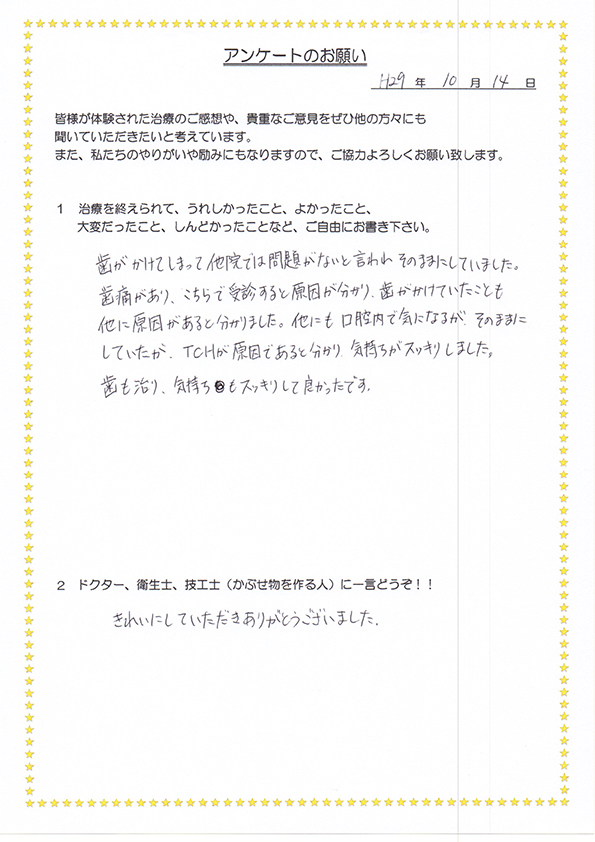 アンケートのお願い
H29 年 10 月 14 日
皆様が体験された治療のご感想や、貴重なご意見をぜひ他の方々にも
聞いていただきたいと考えています。
また、私たちのやりがいや励みにもなりますので、ご協力よろしくお願い致します。
1 治療を終えられて、うれしかったこと、よかったこと、
大変だったこと、しんどかったことなど、ご自由にお書き下さい。
歯がかけてしまって他院では問題がないと言われそのままにしていました。
歯痛があり、こちらで受診すると原因が分かり、歯がかけていたことも
他に原因があると分かりました。他にも口腔内で気になるが、そのままに
していたが、TCHが原因であると分かり、気持ちがスッキリしました。
歯も治り、気持ちもスッキリして良かったです。
2 ドクター、衛生士、技工士（かぶせ物を作る人）に一言どうぞ！！
きれいにしていただきありがとうございました。